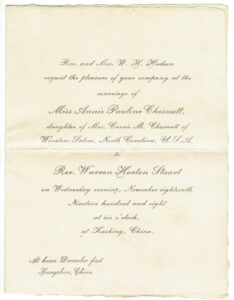 Rev. and Mrs. W. H. Hudson
request the pleasure of your company at the
marriage of
Miss Annie Pauline Chesnutt,
daughter of Mrs. Carrie M. Chesnutt of
Winston-Salem, North Carolina, U.S.A.
to
Rev. Warren Horton Stuart
on Wednesday evening, November eighteenth
Nineteen hundred and eight
at six o'clock,
at Kashing, China.
At home December first
Hangchow, China.